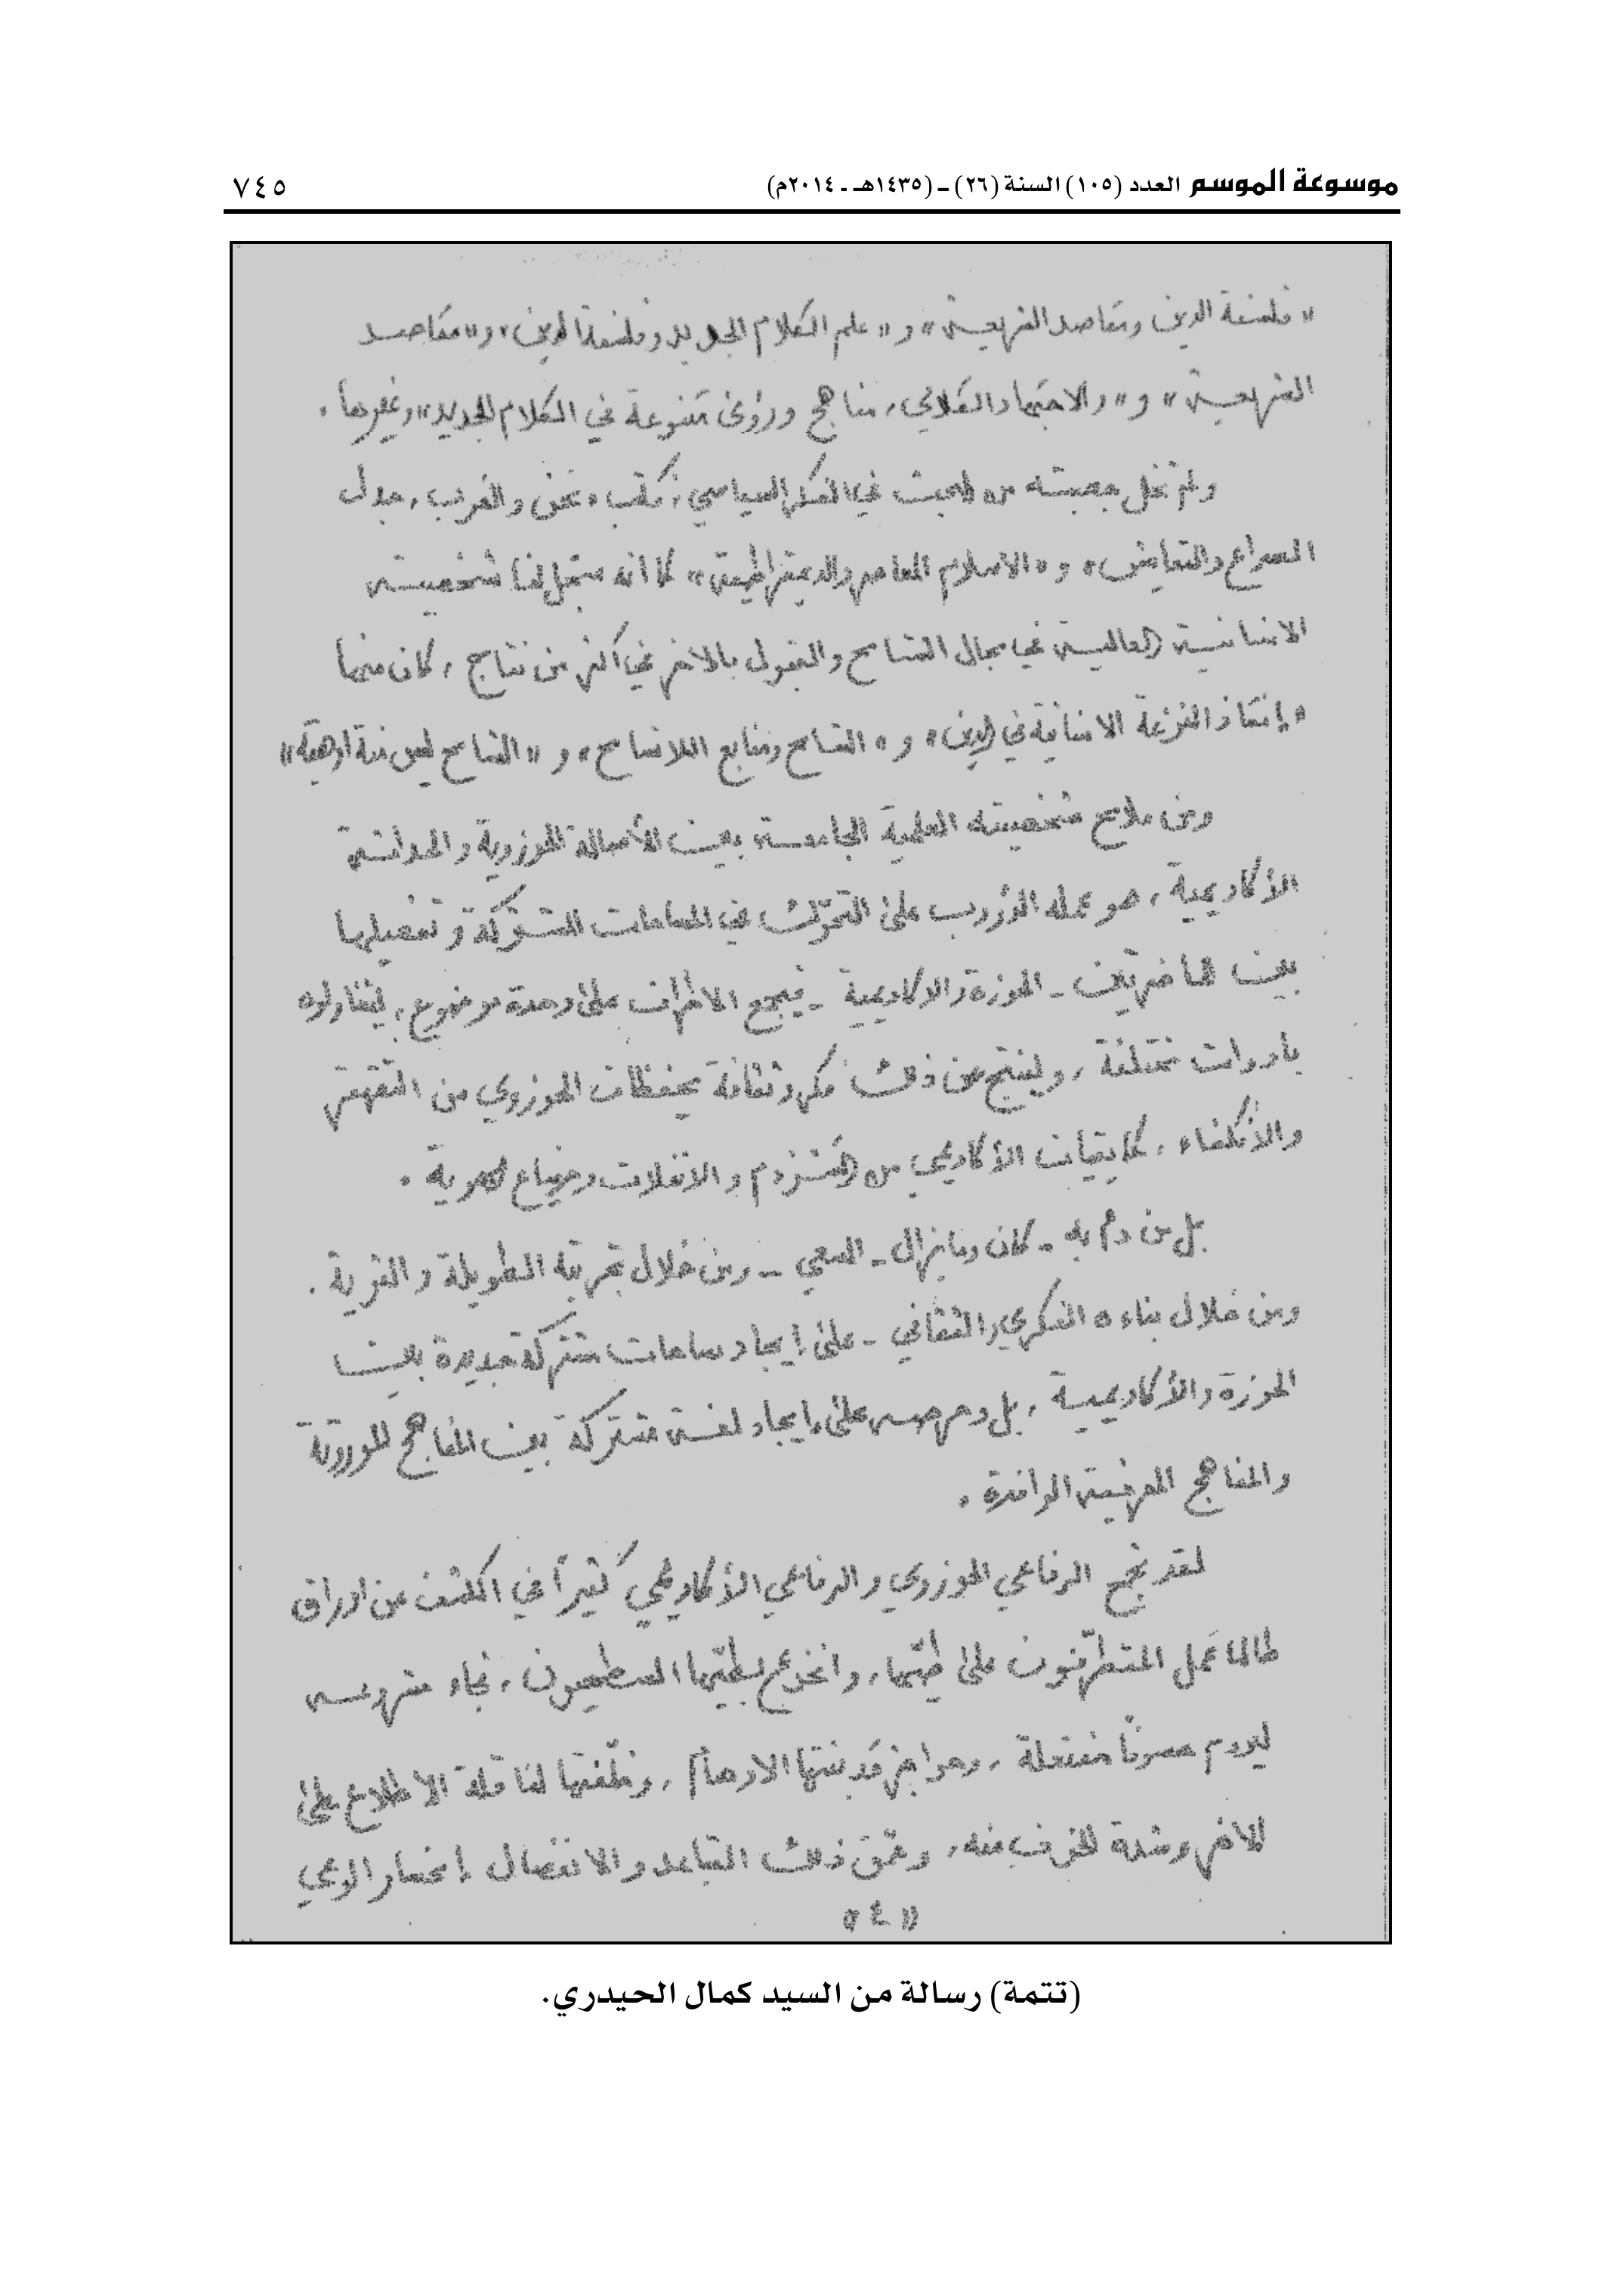 موسوعة الموسم العدد (١٠٥) السنة (٢٦) ـ (١٤٣٥هـ ـ ٢٠١٤م) ٧٤٥
«فلسفة الدين ومقاصد الشريعة» و«علم الكلام الجديد وفلسفة الدين» و«مقاصد
الشريعة» و«والاجتهاد الكلامي، مناهج ورؤى متنوعة في الكلام الجديد» وغيرها.
ولم تخل جعبته من البحث في الفكر السياسي، ككتب «نحن والغرب، جدل
الصراع والتعايش» و«الاسلام المعاصر والديمقراطية» كما انه ستجل لنا شخصيته
الانسانية العالية في مجال التسامح والقبول بالآخر في أكثر من نتاج، كان منها
«إنقاذ النزعة الانسانية في الدين» و«التسامح ومنابع اللاتسامح» و«التسامح ليس منة او هبة»
ومن ملامح شخصيته العلمية الجامعة بين الأصالة الحوزوية والحداثة
الأكاديمية، هو عمله الدؤوب على التحرّك في المساحات المشتركة وتفعيلها
بين الحاضرتين - الحوزة والاكاديمية - فيجمع الاطراف على وحدة موضوع، يتناولوه
بادوات مختلفة، ولينتج من ذلك فكر وثقافة يحفظان الحوزوي من التقهقر
والأنكفاء، كما يقيان الأكاديمي من التشرذم والانفلات وضياع الهوية.
بل من دأبه - كان وما يزال - السعي - ومن خلال تجربته الطويلة والثرية.
ومن خلال بناءه الفكري والثقافي - على إيجاد مساحات مشتركة جديدة بين
الحوزة والأكاديمية، بل وحرصه على إيجاد لغة مشتركة بين المناهج الموروثة
والمناهج المعرفية الوافدة.
لقد نجح الرفاعي الحوزوي والرفاعي الأكاديمي كثيراً في الكشف عن اوراق
طالما عَمل المتطرّفون على طيّها، وانخدع بطيّها السطحيون، فجاء مشروعه
ليردم هوّاً مفتعلة، وحواجز قد بنتها الاوهام، وخلّفتها لنا قلة الاطلاع على
الآخر وشدة الخوف منه، وعمّق ذلك التباعد والانفصال إنحسار الوعي
«٤»
(تتمة) رسالة من السيد كمال الحيدري.